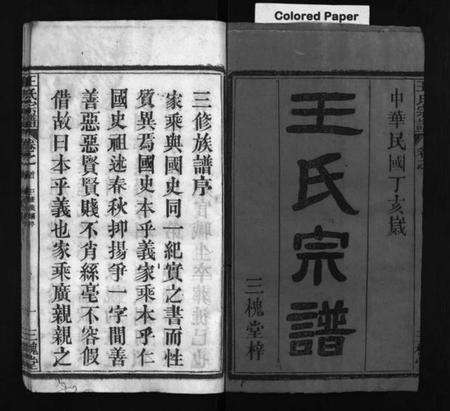 Colored Paper
中華民國丁亥歲
王氏宗譜
三槐堂梓
三修族譜序
家乘與國史同一紀實之書而性
質異焉國史本乎義家乘本乎仁
國史祖述春秋抑揚爭一字間善
善惡惡賢賢賤不肖絲毫不容假
借故曰本乎義也家乘廣親親之
三槐堂